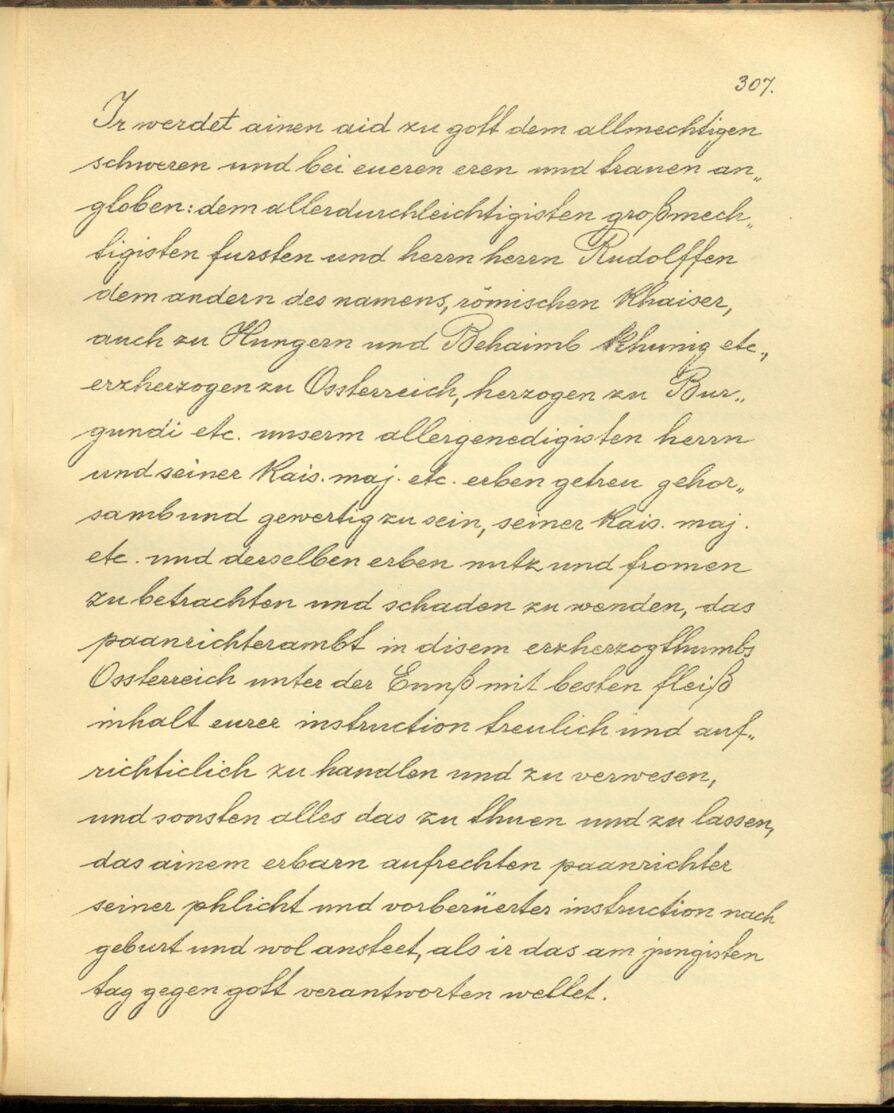 307.
Ir werdet ainen aid zu gott dem allmechtigen
schweren und bei eueren eren und trauen an„
globen: dem allerdurchleichtigisten großmech„
tigisten fursten und herrn herrn Rudolffen
dem andern des namens, römischen Khaiser,
auch zu Hungern und Behaimb Khunig etc.,
erzherzogen zu Ossterreich, herzogen zu Bur„
gundi etc. unserm allergenedigisten herrn
und seiner Kais. maj. etc. erben getreu gehor„
samb und gewertig zu sein, seiner Kais. maj.
etc. und derselben erben nutz und fromen
zu betrachten und schaden zu wenden, das
paanrichterambt in disem erzherzogthumbs
Ossterreich unter der Ennß mit besten fleiß
inhalt eurer instruction treulich und auf„
richticlich zu handlen und zu verwesen,
und sonsten alles das zu thuen und zu lassen,
das ainem erbarn aufrechten paanrichter
seiner phlicht und vorberüerter instruction nach
geburt und wol ansteet, als ir das am jungisten
tag gegen gott verantworten wellet.